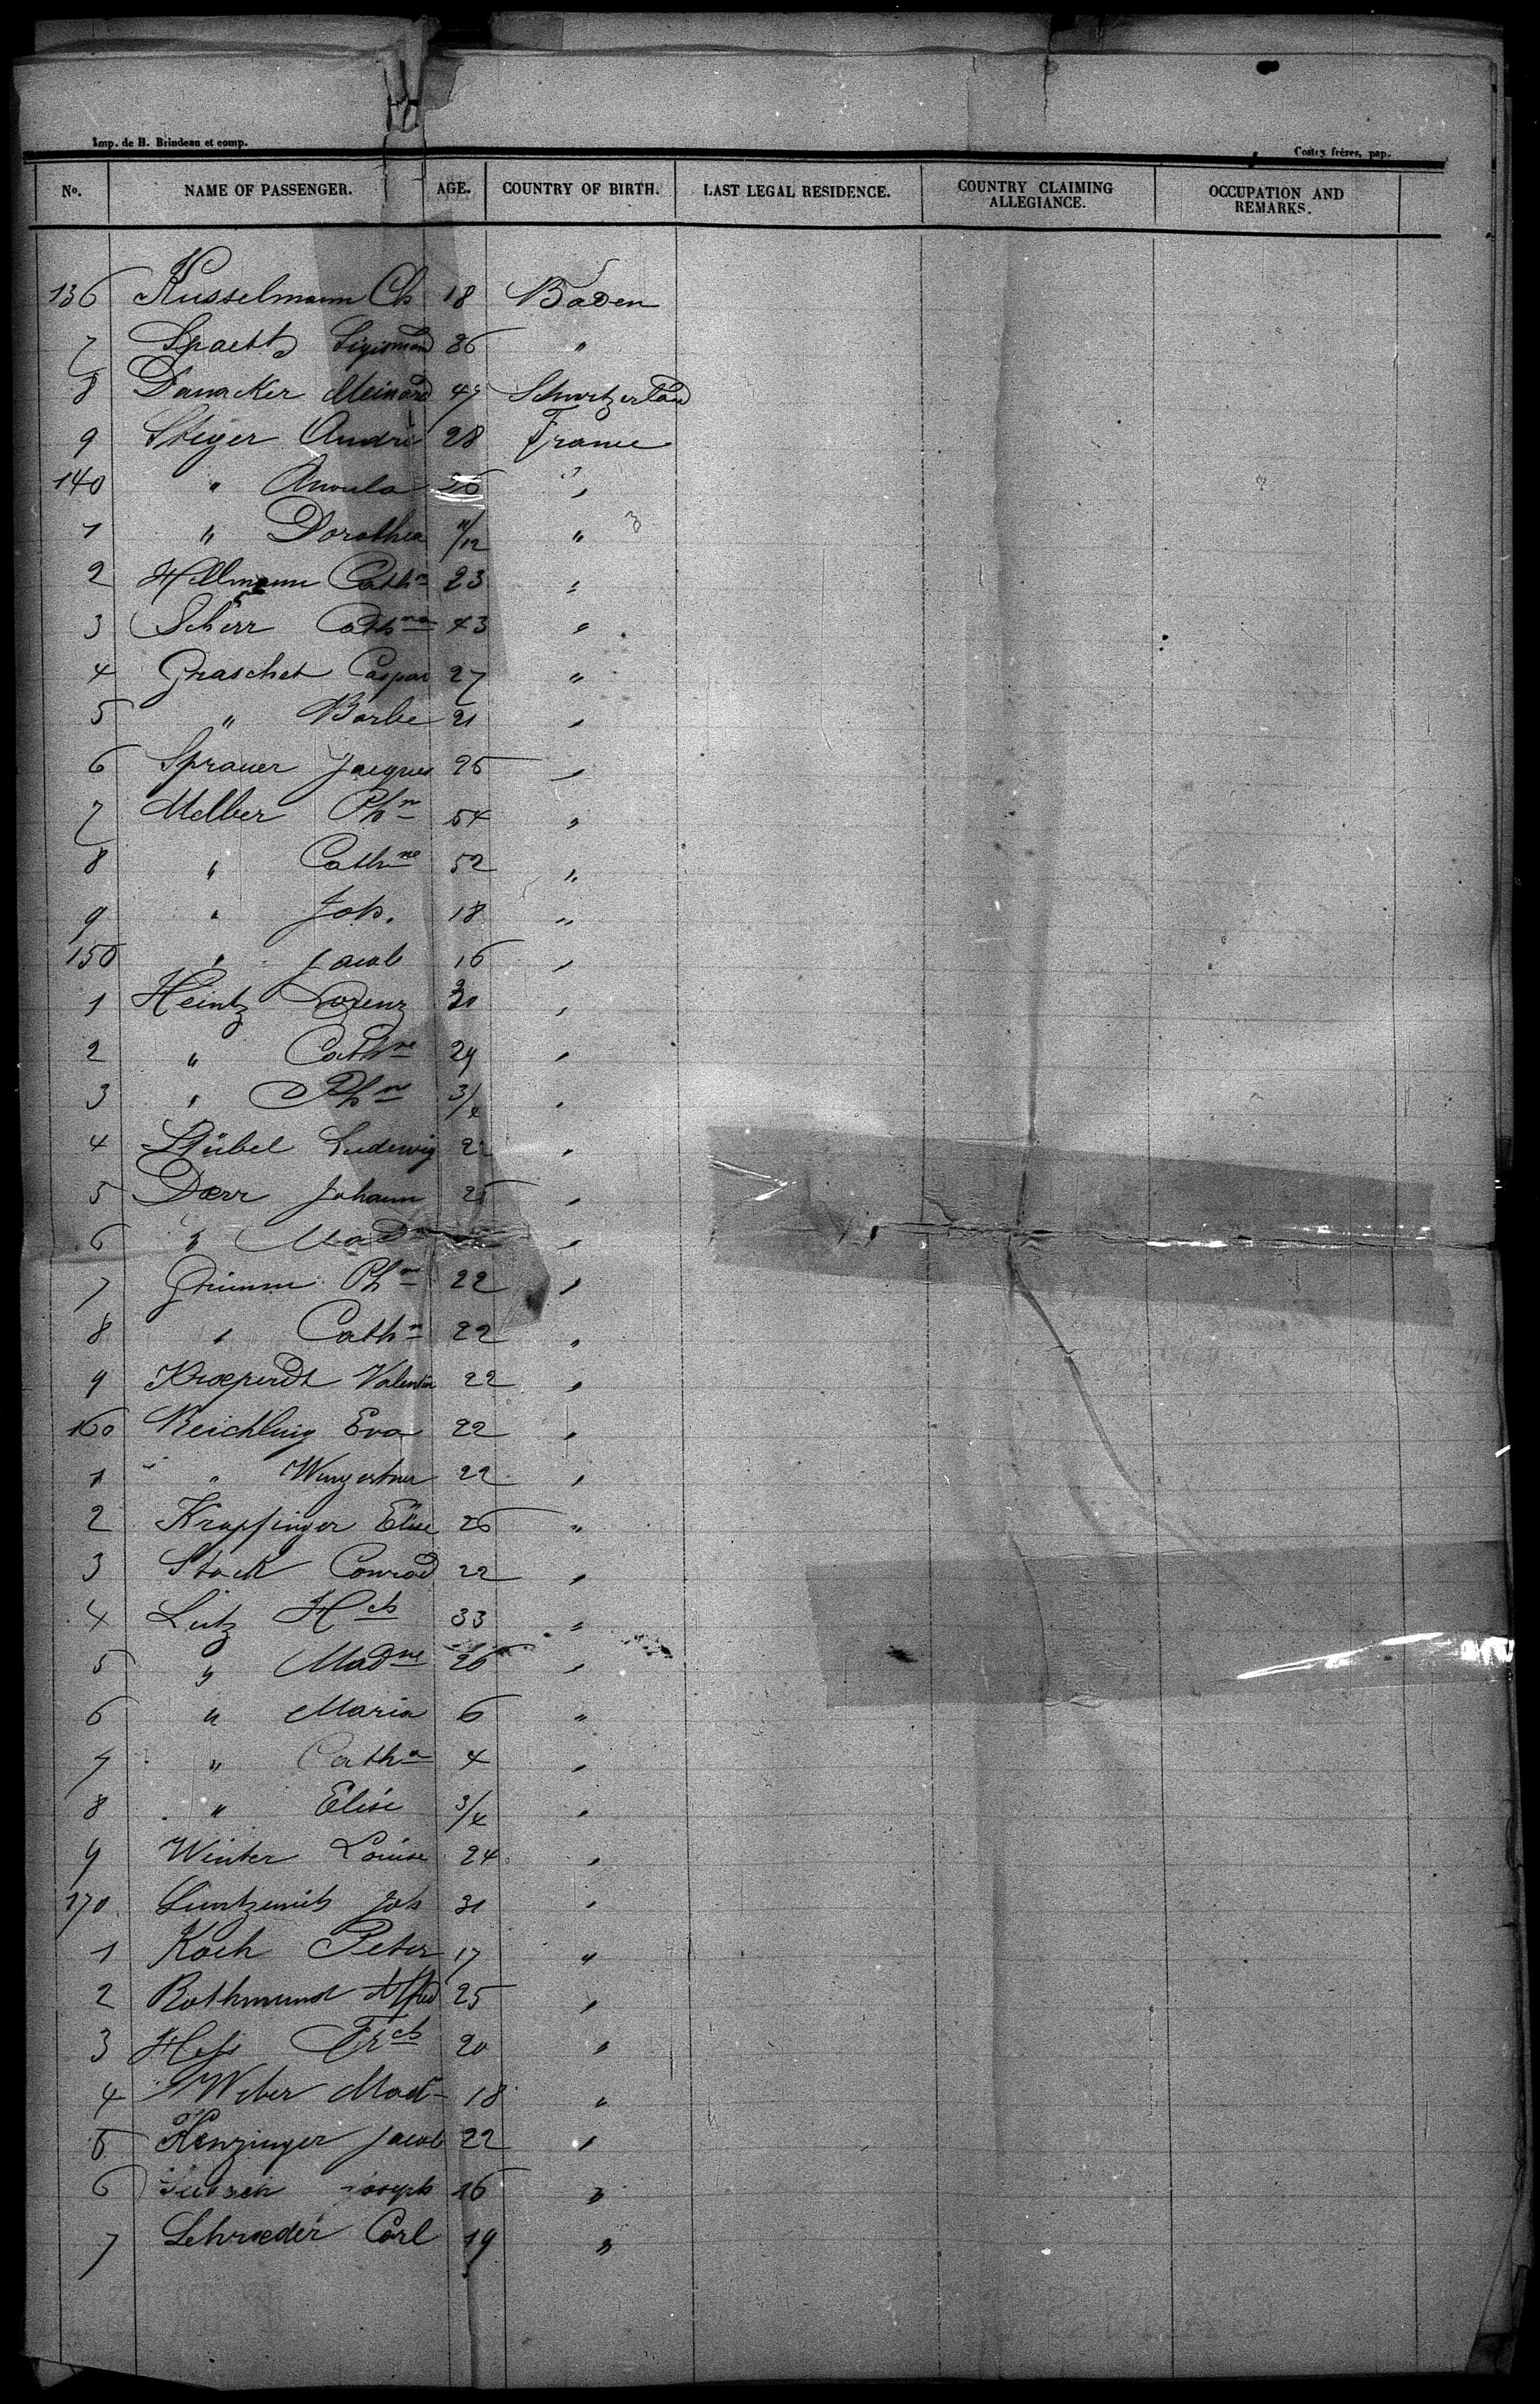 Imp. de H. Brindeau et comp.
Costey frères, pap.
No. NAME OF PASSENGER. AGE. COUNTRY OF BIRTH. LAST LEGAL RESIDENCE. COUNTRY CLAIMING ALLEGIANCE. OCCUPATION AND REMARKS.
136 Kusselmann Ch 18 Baden
7 Spaeth Sigismond 36 "
8 Danacker Meinard 47
9 Steger André 28 France
140 " 26 "
1 " Dorothea 11/12 "
2 Hellmann Cathne 23 "
3 Scherr Cathne 43 "
4 Graschet Caspar 27 "
5 " Barbe 21 "
6 Sprauer Jacques 25 "
7 Melber Phn 54 "
8 " Cathne 52 "
9 " Joh. 18 "
150 " Jacob 16 "
1 Heintz Lorenz 30 "
2 " Cathne 29 "
3 " Phne 3/4 "
4 Stübel Ludewig 22 "
5 Dærr Johann 25 "
6 " Madne "
7 Grimm Phne 22 "
8 " Cathn 22 "
9 Valentin 22 "
160 Reichling Eva 22 "
1 " Wingertner 22 "
2 Krapfinger Elise 26 "
3 Stock Conrad 22 "
4 Lutz Hch 33 "
5 " Madne 26 "
6 " Maria 6 "
7 " Catha 4 "
8 " Elise 3/4 "
9 Winter Louise 24 "
170 Joh 31 "
1 Koch Peter 17 "
2 Rothmund Alfred 25 "
3 Hess Frch 20 "
4 Weber Mad 18 "
5 Henzinger Jacob 22 "
6 Joseph 16 "
7 Schrœder Carl 19 "